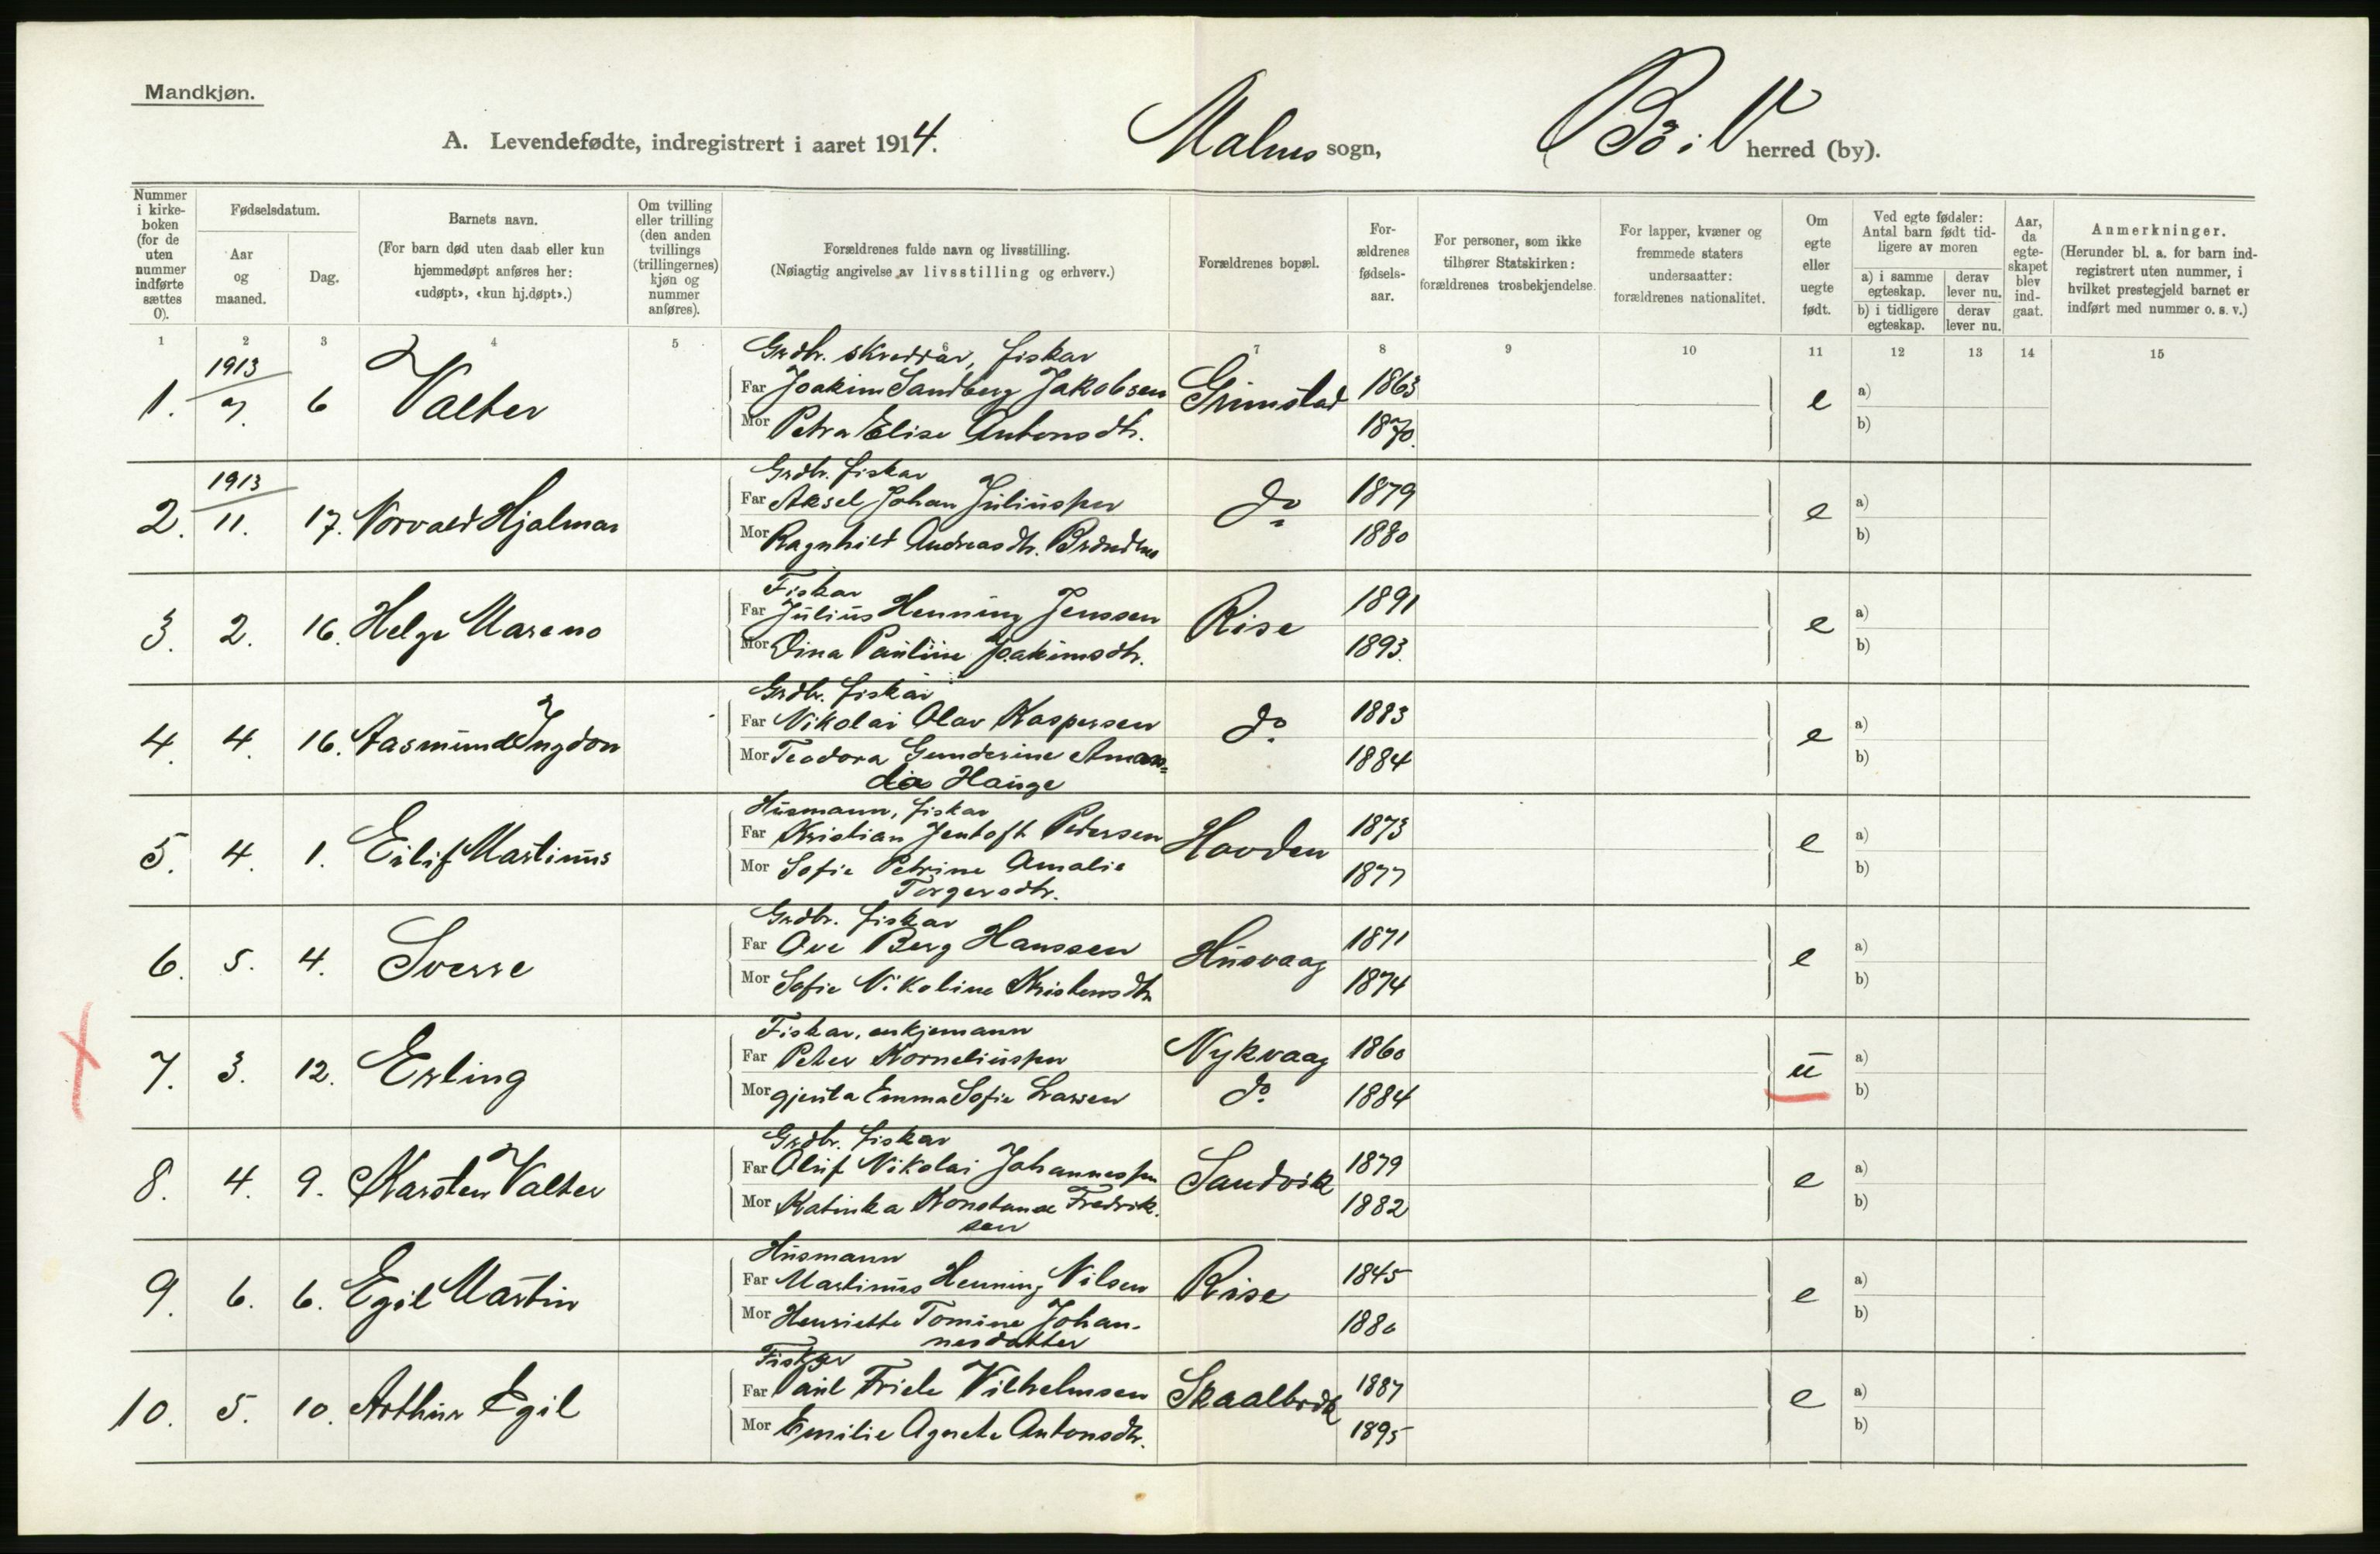 Mandkjøn.
A. Levendefødte, indregistrert i aaret 1914. Malnes sogn, Bö i V herred (by).
Nummer i kirkeboken (for de uten nummer indførte sættes 0).
Fødselsdatum.
Aar og maaned.
Dag.
Barnets navn.
(For barn død uten daab eller kun hjemmedøpt anføres her: «udøpt», «kun hj.døpt».)
Om tvilling eller trilling (den anden tvillings (trillingernes) kjøn og nummer anføres).
Forældrenes fulde navn og livsstilling.
(Nøiagtig angivelse av livsstilling og erhverv.)
Forældrenes bopæl.
Forældrenes fødselsaar.
For personer, som ikke tilhører Statskirken: forældrenes trosbekjendelse.
For lapper, kvæner og fremmede staters undersaatter: forældrenes nationalitet.
Om egte eller uegte født.
Ved egte fødsler: Antal barn født tidligere av moren
a) i samme egteskap.
derav lever nu.
b) i tidligere egteskap.
derav lever nu.
Aar, da egteskapet blev indgaat.
Anmerkninger.
(Herunder bl. a. for barn indregistrert uten nummer, i hvilket prestegjeld barnet er indført med nummer o. s. v.)
1 2 3 4 5 6 7 8 9 10 11 12 13 14 15
Grdbr. skreddar, fiskar
1. 1913 7. 6 Valter Far Joakim Sandberg Jakobsen Grimstad 1863 e a)
Mor Petra Elise Antonsdtr. 1870. b)
Grdbr. fiskar
2. 1913 11. 17. Norvald Hjalmar Far Aksel Johan Juliussen do 1879 e a)
Mor Ragnhild Andreasdtr. 1880 b)
Fiskar
3. 2. 16. Helge Mareno Far Julius Henning Jenssen Rise 1891 e a)
Mor Dina Pauline Joakimsdtr. 1893. b)
Grdbr. fiskar
4. 4. 16. Aasmund Ingdon Far Nikolai Olav Kaspersen do 1883 e a)
Mor Teodora Gunderine Aman=
dia Hauge 1884 b)
Husmann, fiskar
5. 4. 1. Eilif Martinus Far Kristian Jentoft Pedersen Hovden 1873 e a)
Mor Sofie Petrine Amalie
Torgersdtr. 1877 b)
Grdbr. fiskar
6. 5. 4. Sverre Far Ove Berg Hanssen Husvaag 1871 e a)
Mor Sofie Nikoline Kristensdtr 1874 b)
Fiskar, enkjemann
7. 3. 12. Erling Far Peter Korneliussen Nykvaag 1860 u a)
Mor gjenta Emma Sofie Larsen do 1884 b)
Grdbr. fiskar
8. 4. 9. Karsten Valter Far Oluf Nikolai Johannessen Sandvik 1879 e a)
Mor Katinka Konstanse Fredrik.
sen 1882 b)
Husmann
9. 6. 6. Egil Martin Far Martinus Henning Nilsen Rise 1845 e a)
Mor Henriette Tomine Johan-
nesdatter 1880 b)
Fiskar
10. 5. 10. Arthur Egil Far Paul Friele Vilhelmsen Skaalbrek 1887 e a)
Mor Emilie Agnete Antonsdtr. 1895 b)